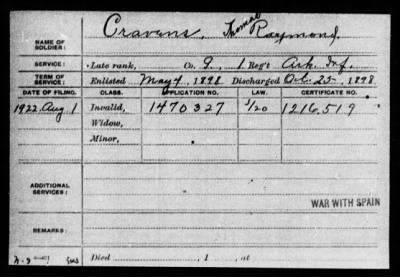 Cravens, Thomas Raymond.
NAME OF SOLDIER:
SERVICE: Late rank, Co. G, 1 Reg't Ark. Inf.
TERM OF SERVICE: Enlisted May 4, 1898 Discharged Oct. 25, 1898
DATE OF FILING. CLASS. APPLICATION NO. LAW. CERTIFICATE NO.
1922. Aug. 1 Invalid, 1470327 1216,519
Widow,
Minor,
ADDITIONAL SERVICES:
WAR WITH SPAIN
REMARKS:
Died , 1 , at